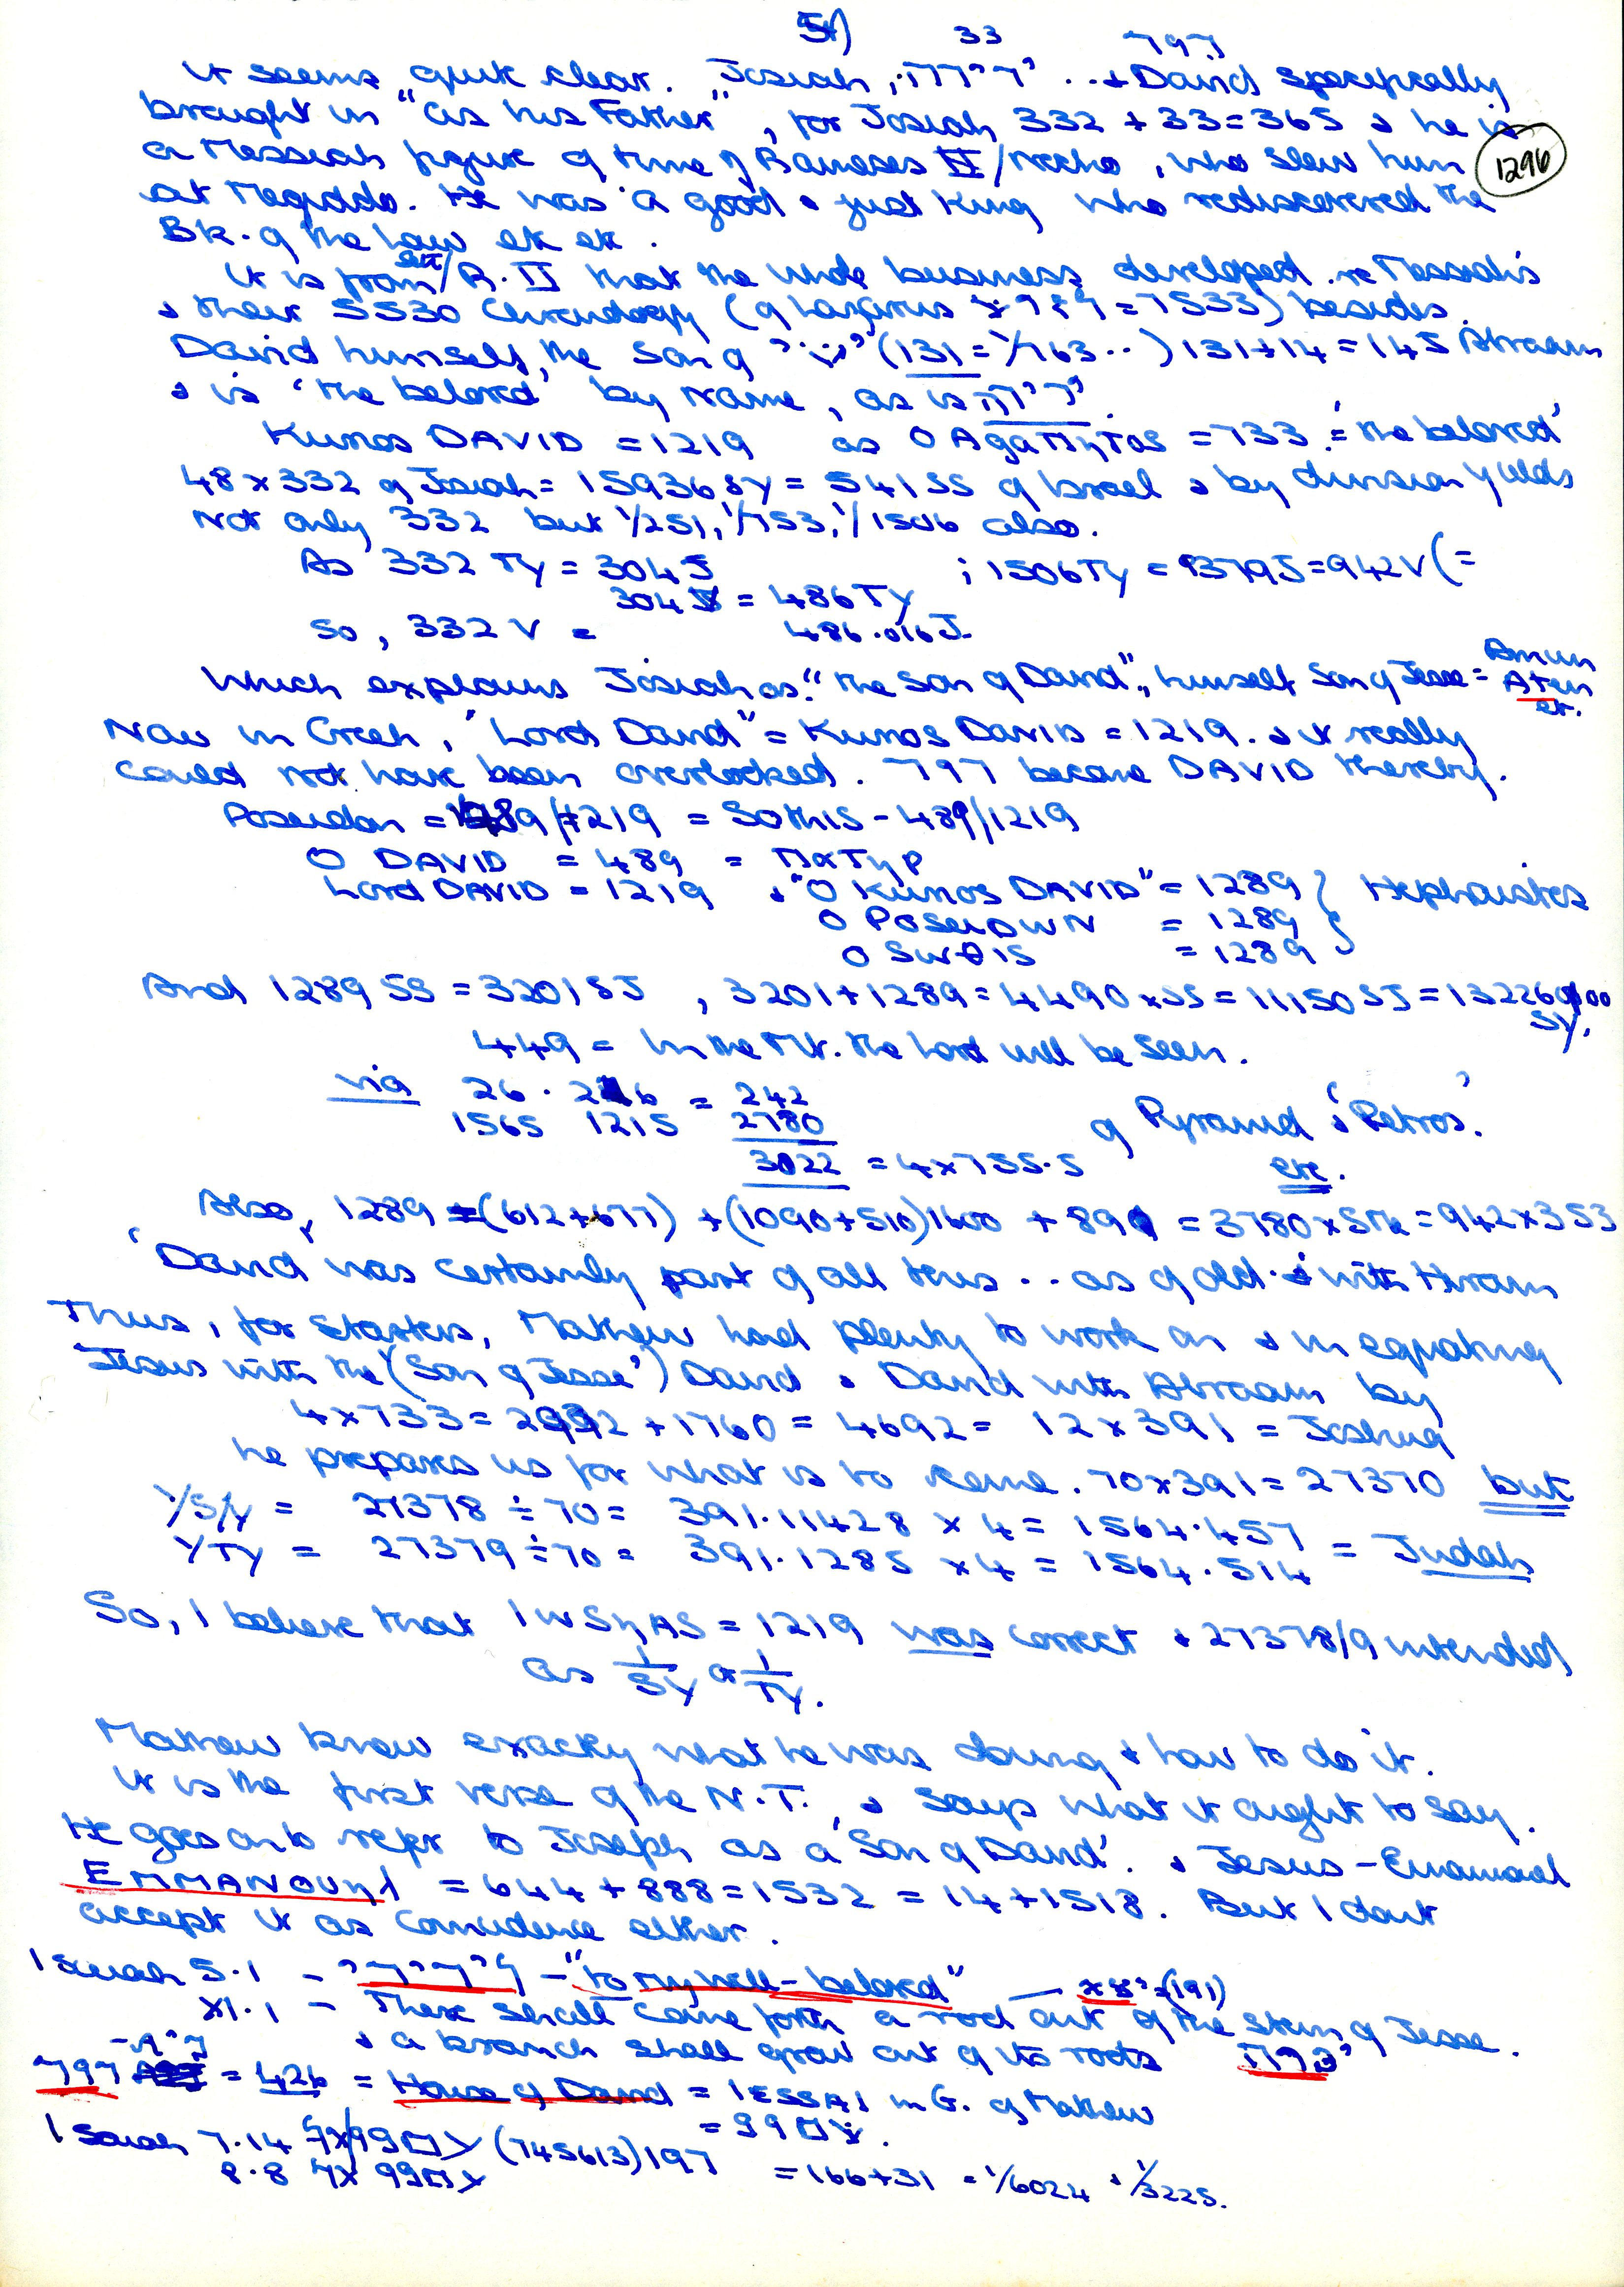 54)
33
דוד
It seems quite clear. Josiah, ידידיה .. & David specifically
brought in "as his Father", for Josiah 332 + 33 = 365 & he is
1296
a Messiah figure of time of Rameses II/Necho, who slew him
at Megiddo. He was a good & just King who rediscovered the
Bk. of the Law etc etc.
It is from R. II that the whole business developed re Messiahs
& their 5530 Chronology (of Lazarus = 7533) besides
David himself, the son of ישי (131 = 1/763..) 131+14 = 145 Abraam
& is 'the beloved' by name, as is
Kurios DAVID = 1219 as O AgaΠηtos = 733 = 'the beloved'
48 x 332 of Josiah = 15936 SY = 541 SS of Israel & by division yields
Not only 332 but 1/251, 1/753, 1/1506 also.
As 332 TY = 304 J ; 1506 TY = 1379 J = 942 V (=
304 = 486 TY
So, 332 V = 486.016 J.
Which explains Josiah as "the son of David", himself Son of Jesse = Amun
Aten
etc.
Now in Greek, "Lord David" = Kurios DAVID = 1219. & it really
could not have been overlooked. דוד became DAVID thereby.
Poseidon = 489/1219 = Sothis - 489/1219
O DAVID = 489 = ΠαTηp
Lord DAVID = 1219 & "O Kurios DAVID" = 1289 } Hephaistos
O POSEIDWN = 1289
O SWθIS = 1289
And 1289 SS = 3201 SJ, 3201 + 1289 = 4490 x SS = 11150 SJ = 132260
SY.
449 = In the Mt. the Lord will be seen.
via 26 . 216 = 242
1565 1215 2780 of Pyramid & 'Petros'.
3022 = 4x755.5 etc.
Also, 1289 = (612+677) + (1090+510) 1600 + 891 = 3780 x STh = 942 x 353
'David' was certainly part of all this .. as of old & with Hiram
Thus, for starters, Mathew had plenty to work on & in equating
Jesus with the (Son of Jesse') David & David with Abraam by
4x733 = 2932 + 1760 = 4692 = 12 x 391 = Joshua
he prepares us for what is to come. 70x391 = 27370 but
1/SY = 27378 ÷ 70 = 391.11428 x 4 = 1564.457
1/TY = 27379 ÷ 70 = 391.1285 x 4 = 1564.514 = Judah
So, I believe that IWSηAS = 1219 was correct & 27378/9 intended
as 1/SY or 1/TY.
Mathew knew exactly what he was doing & how to do it.
It is the first verse of the N.T. & says what it ought to say.
He goes on to refer to Joseph as a 'Son of David'. & Jesus - Emanuel
EMMANOUηλ = 644 + 888 = 1532 = 14 + 1518. But I dont
accept it as coincidence either.
Isaiah 5.1 - לידידי - "to my well-beloved" (191)
XI.1 - There shall come forth a rod out of the stem of Jesse.
& a branch shall grow out of its roots
דוד = 426 = House of David = IESSAI in G. of Mathew
Isaiah 7.14 (745613) 197 = 166+31 = 1/6024 & 1/3225.
8.8